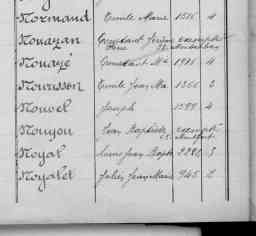 Normand Emile Marie 1516 4
Nouazan Constant Jérôme exempté
Nouayé Constant Me 1921 4
Nourisson Emile Jean Ma. 1360 3
Nouvel Joseph 1599 4
Nouyou Jean Baptiste exempté
Noyal Louis Jean Bapte 2280 3
Noyalet Jules Jean Marie 945 2